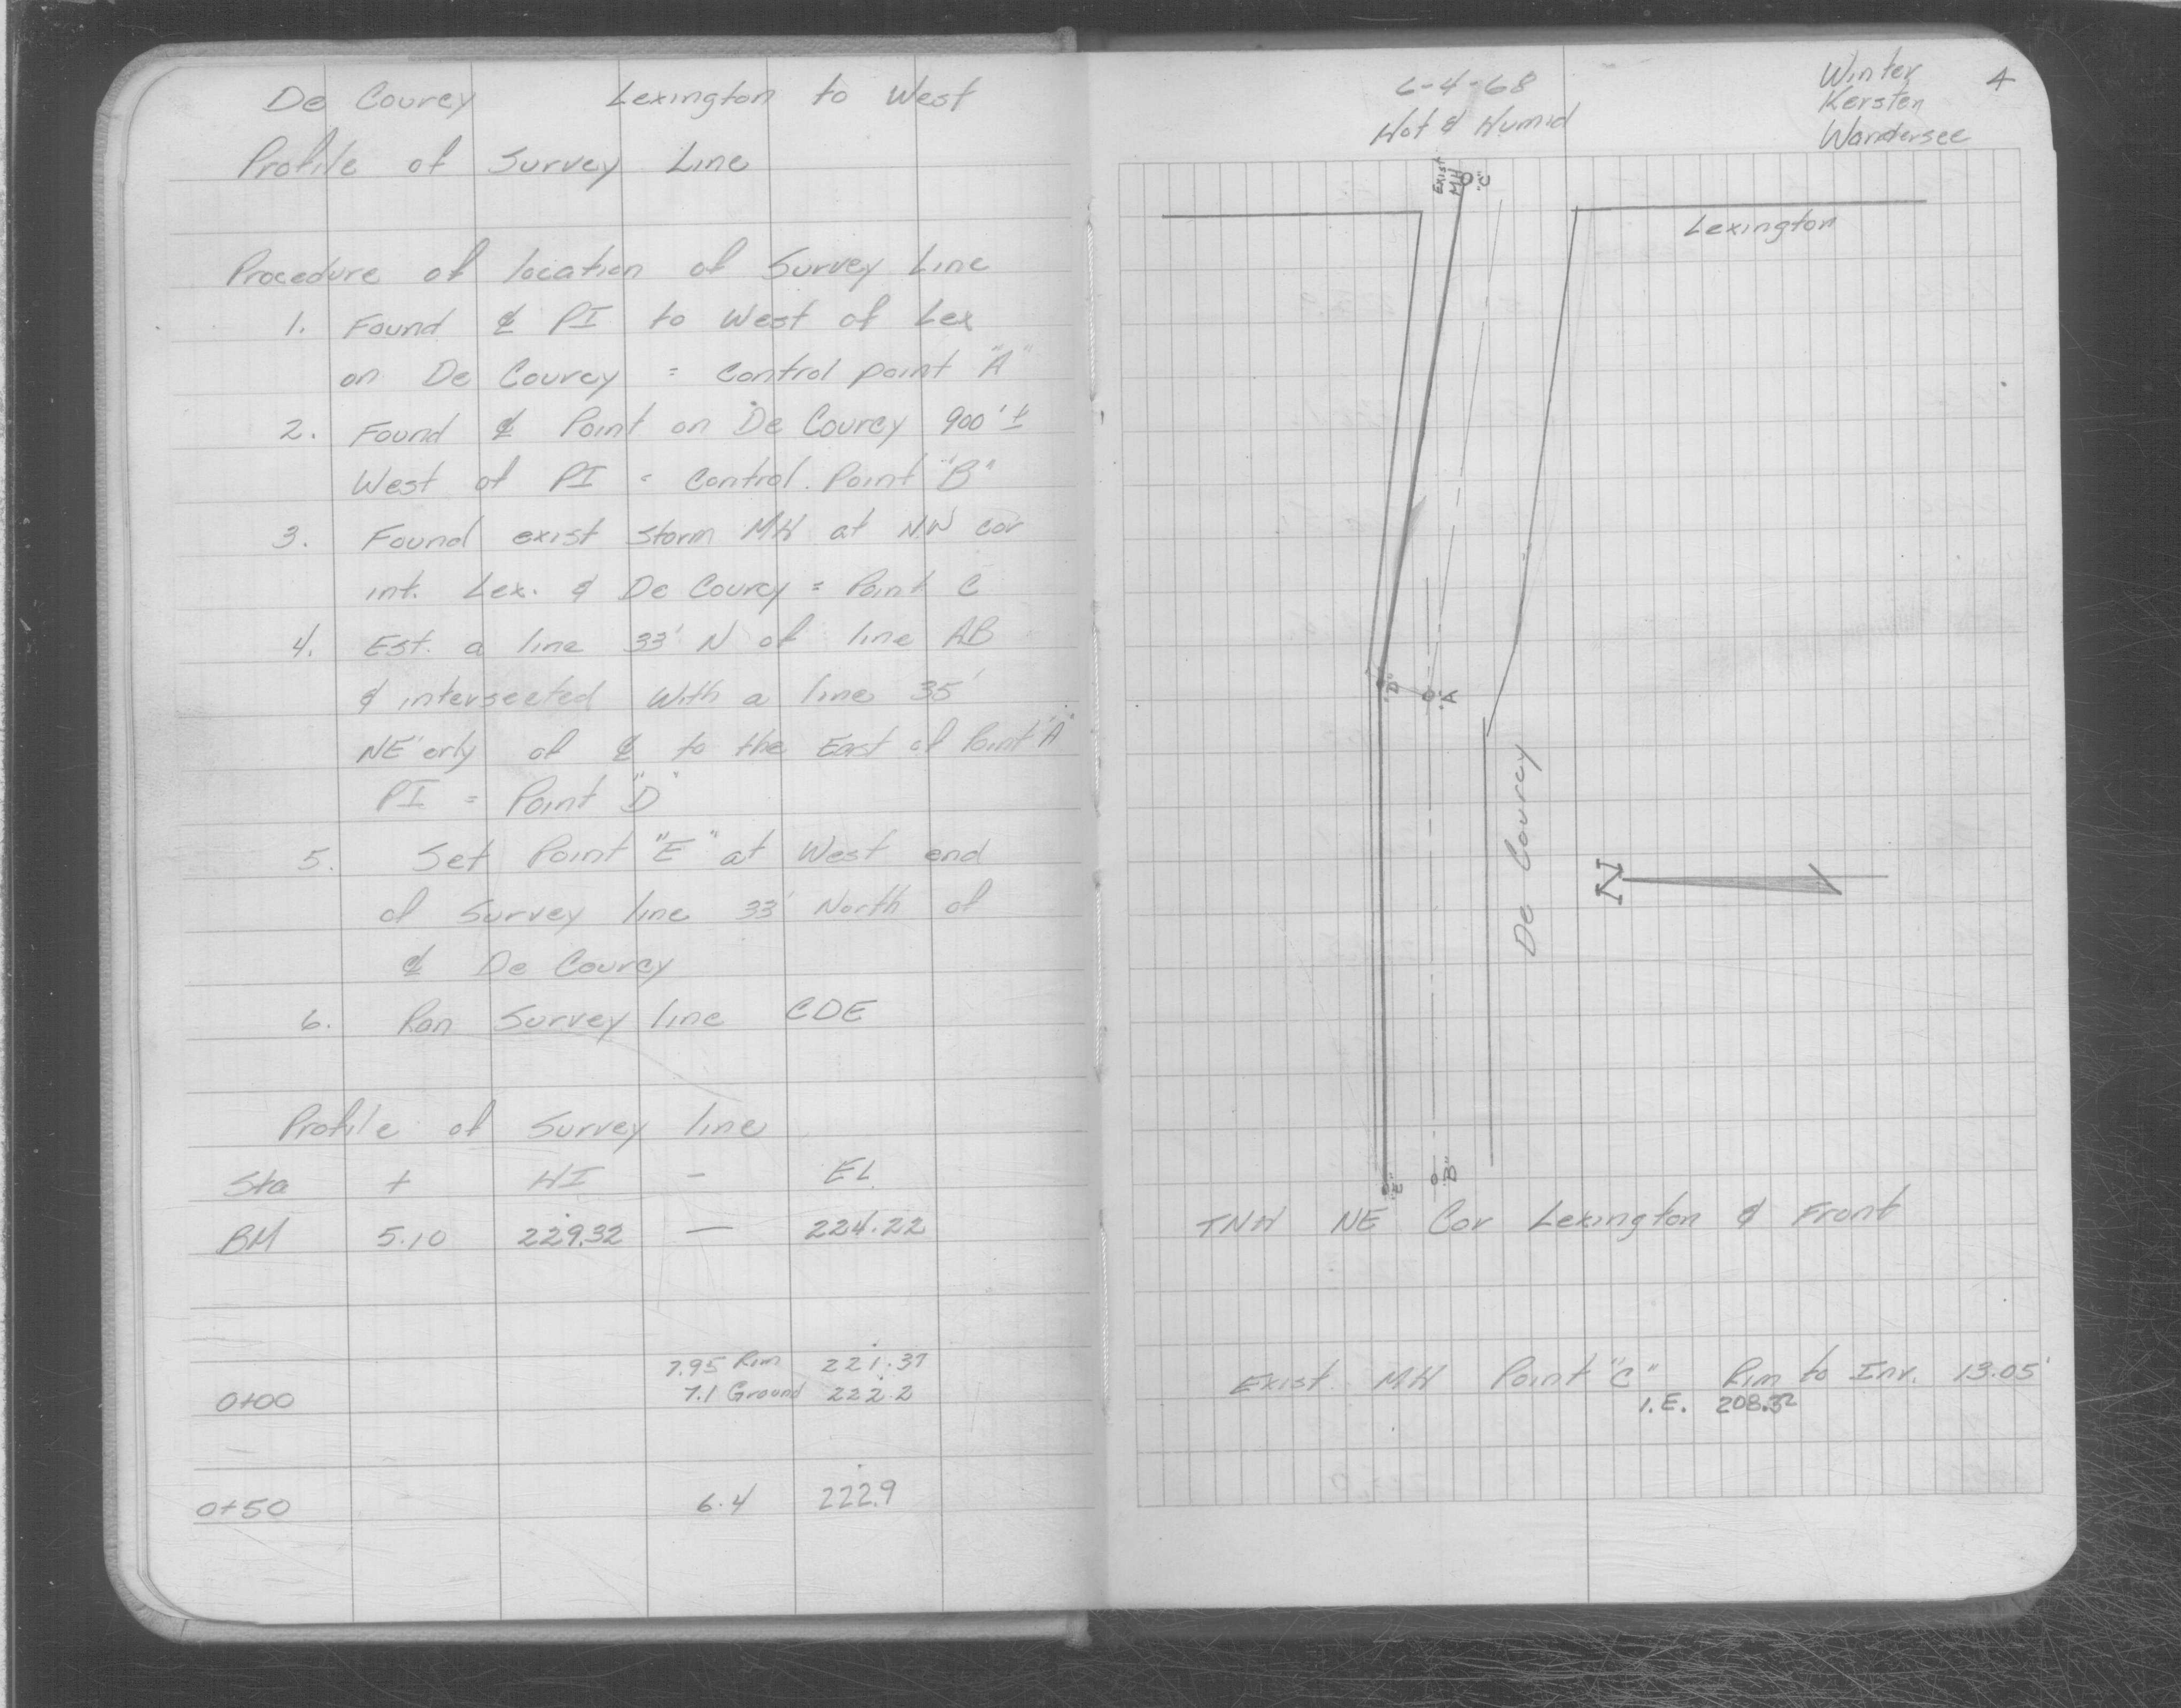 De Courcy Lexington to West
Profile of Survey Line
Procedure of location of Survey Line
1. Found ℄ PI to West of Lex
on De Courcy = control point "A"
2. Found ℄ Point on De Courcy 900'±
West of PI = Control Point "B"
3. Found exist storm MH at NW cor
int. Lex. & De Courcy = Point C
4. Est. a line 33' N of line AB
& intersected with a line 35'
NE'erly of ℄ to the East of Point "A"
PI = Point "D"
5. Set Point "E" at West end
of Survey line 33' North of
℄ De Courcy
6. Ran Survey line CDE
Profile of Survey line
Sta + HI - EL
BM 5.10 229.32 — 224.22
7.95 Rim 221.37
0+00 7.1 Ground 222.2
0+50 6.4 222.9
6-4-68
Hot & Humid
Winter
Kersten
Wandersee
4
Exist
MH
"C"
Lexington
"D"
"A"
De Courcy
N
"E"
"B"
TNH NE Cor Lexington & Front
Exist. MH Point "C" Rim to Inv. 13.05'
I.E. 208.32